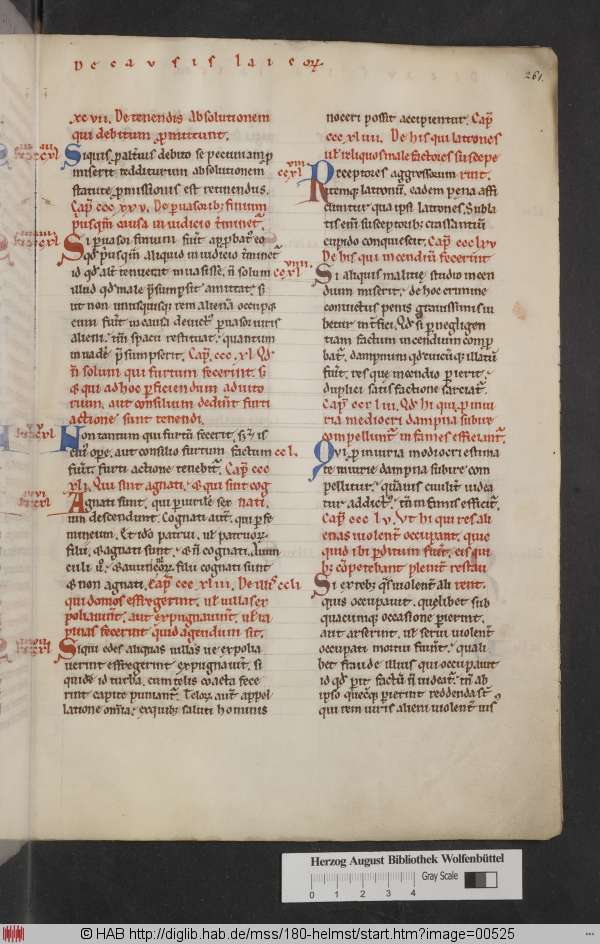 De causis laicoꝝ
261.
xcvii. De tenendis absolutionem
qui debitum ꝑmittunt.
Siquis debito se pecuniam
miserit redditurum absolutionem
statute ꝑmissionis est retinendus.
Cap̄ ccc xxv. De ꝑuasorib; finium
causa in iudicio
Si ꝑuasor finium fuit eo
aliquid in iudicio
id qd alt̄ tenuerit inuasisse, n̄ solum
illud qd male amittat; s;
ut non unusquisq; rem alienā
cum in causa ꝑuasor iuris
alieni. spacii restituat; quantum
Cap̄ ccc. xl. Qd
n̄ solum qui furtum fecerint. s;
& qui ad hoc ꝑficiendum adiuto
rium, aut consilium dederint furti
actione sunt tenendi.
Non tantum qui furtū fecerit, s; & is
cui ope, aut consilio furtum factum
fuit. furti actione tenebit̄. Cap̄ ccc
xli. Qui sint agnati. & qui sint cog
Agnati sunt, qui ꝑ uirile sex nati.
um descendunt. Cognati aut̄. qui ꝑ fe
mineum. Et ido patrui, ul patruoꝝ
filii, & agnati sunt, & n̄ cognati. Auun
culi ū, & auunculoꝝ filii cognati sunt
& non agnati. Cap̄ ccc xliii. De
qui domos effregerint, ul uillas ex
poliauint. aut expugnauint. ul ra
pinas fecerint quid agendum sit.
Siqui edes aliquas uillas ue expolia
uerint effregerint expugnauint. si
quidē id turba, cum telis coacta fece
rint capite puniant̄. Teloꝝ aut̄ appel
latione om̄ia, ex quib; saluti hominis
noceri possit accipientur. Cap̄
ccc xliiii. De his qui latrones
ul reliquos malefactores suscepe
Receptores aggressorum rint.
itemq; latronū, eadem pena affi
ciuntur qua ipsi latrones. Subla
tis enī susceptorib; crassantiū
cupido conquiescit. Cap̄ ccc lxv
De his qui incendiū fecerint
Si aliquis malitie studio incen
dium miserit; de hoc crimine
conuictus penis grauissimis iu
betur int̄fici. Qd si ꝑ negligen
tiam factum incendium comꝑ
bat̄, dampnum qd cuicūq; illatū
fuit, res que incendio ꝑierit,
duplici satisfactione sarciat̄.
Cap̄ ccc liii. Qd hi qui ꝑ iniu
ria mediocri dampna subire
compellunt̄ infames efficiant̄.
Qui ꝑ iniuria mediocri estima
te iniurie dampna subire com
pellitur, quāuis ciuilit̄ uidea
tur addict̄, tn̄ infamis efficit̄.
Cap̄ ccc lv. Ut hi qui res ali
enas uiolent̄ occupant, que
quid ibi ꝑditum fuit. eis qui
b; conpetebant plenit̄ restau
Si ex reb; qs uiolent̄ ali rent.
quis occupauit, quelibet sub
quacumq; occasione ꝑierint.
aut arserint, ul serui uiolent̄
occupati mortui fuint. quali
bet fraude illius qui occupauit
id qd ꝑit factū n̄ uideat̄. tn̄ ab
ipso quecq; ꝑierint reddenda st̄
qui rem iuris alieni uiolent̄ uis
Herzog August Bibliothek Wolfenbüttel
Gray Scale
0 1 2 3 4
© HAB http://diglib.hab.de/mss/180-helmst/start.htm?image=00525